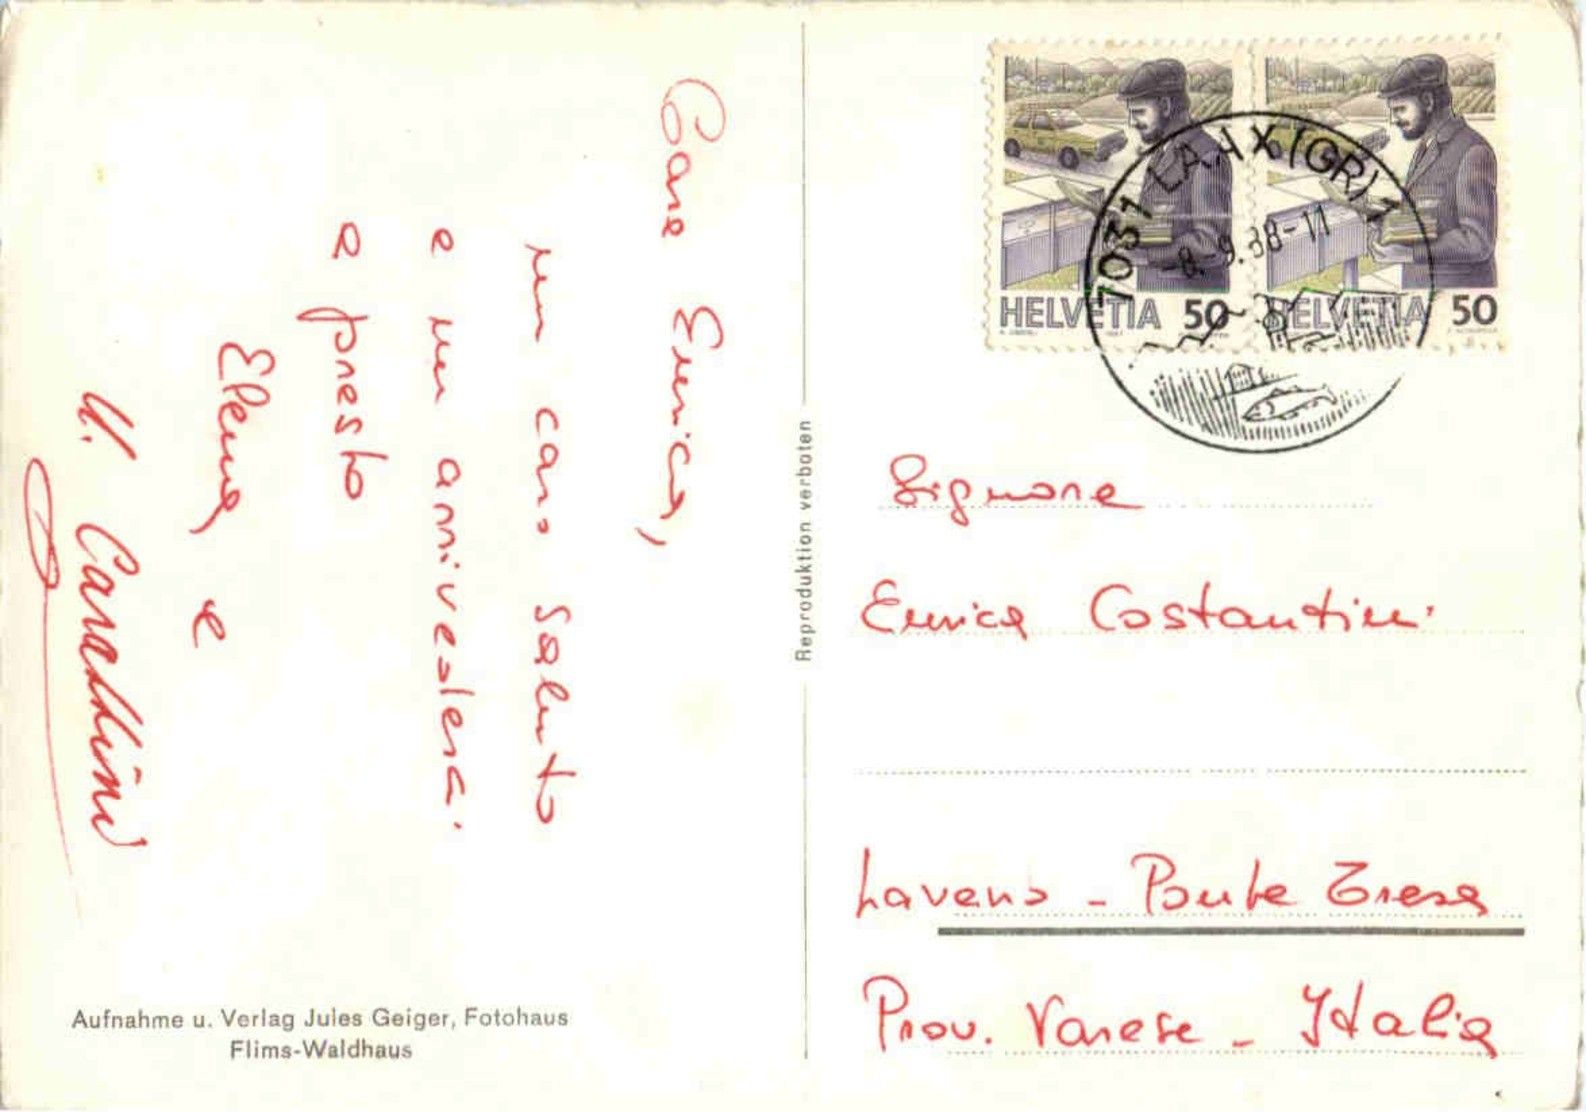 Care Enrica,
un caro saluto
e un arrivederci.
e presto
Elena e
Aufnahme u. Verlag Jules Geiger, Fotohaus
Flims-Waldhaus
Reproduktion verboten
HELVETIA 50
HELVETIA 50
7031 LAAX (GR) 1
-8.-9.88-11
Signora
Enrica Costantini
Laveno - Ponte Tresa
Prov. Varese - Italia